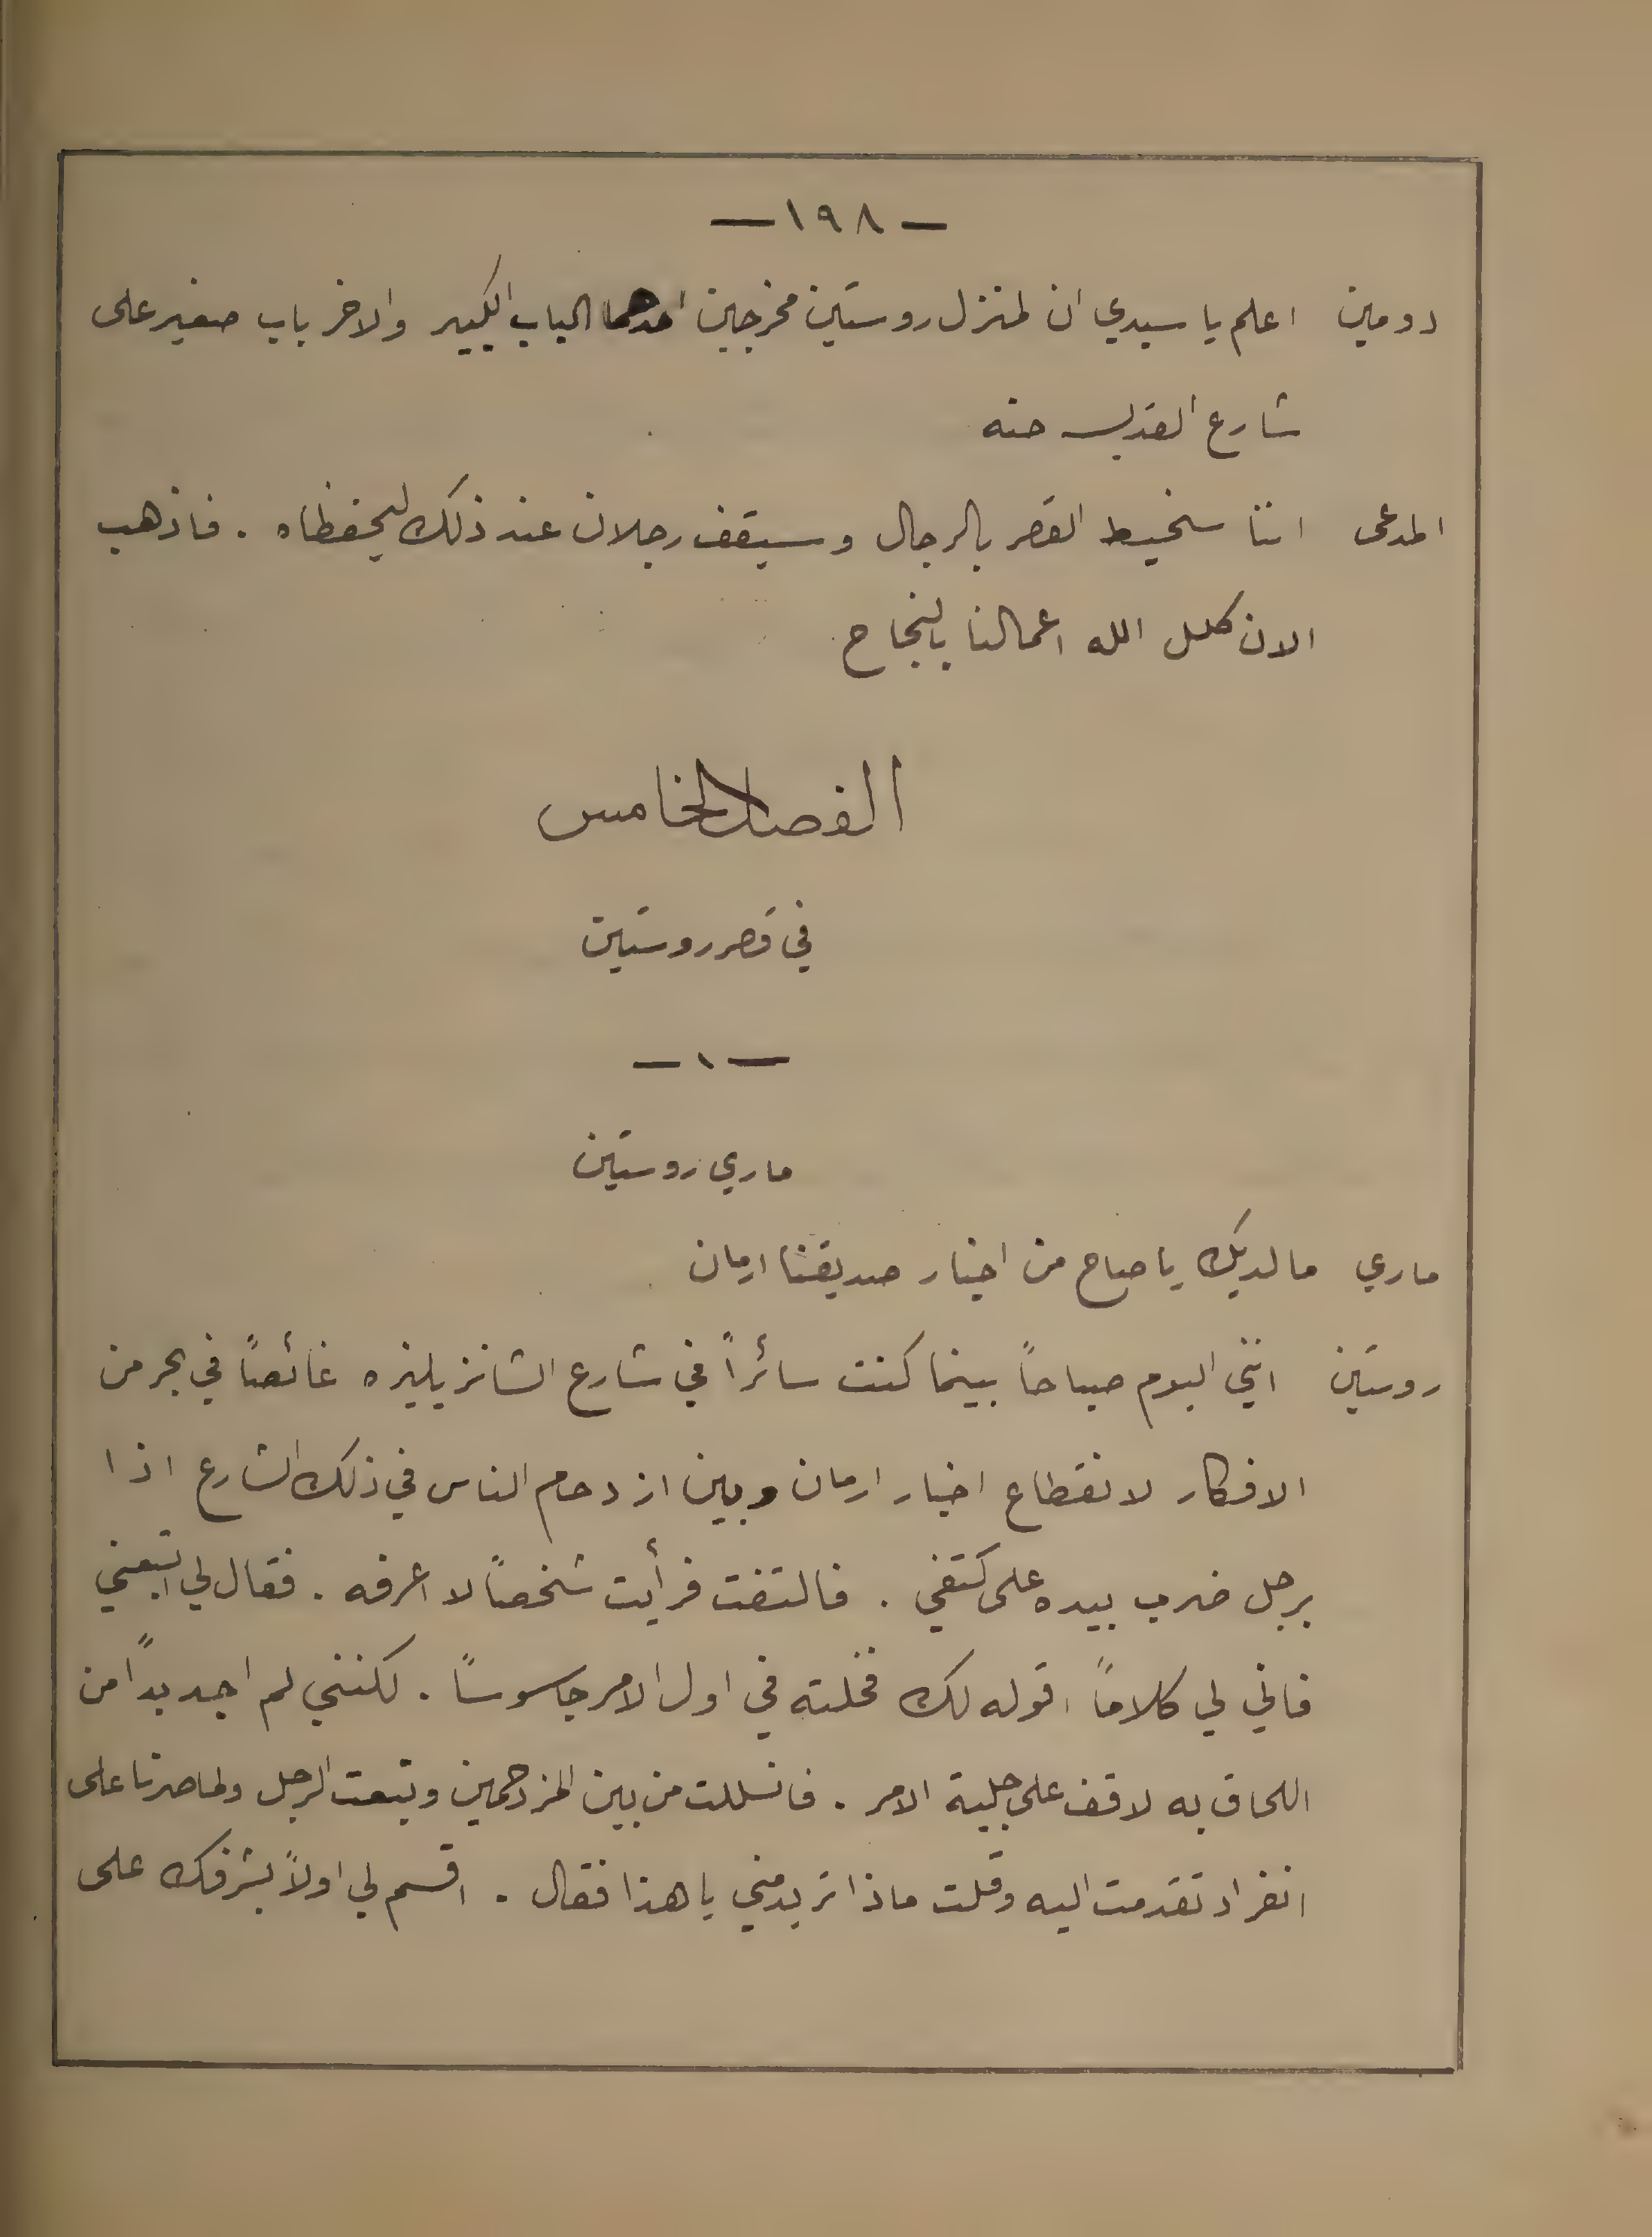 — ١٩٨ —
دومين اعلم يا سيدي ان لمنزل روستين مخرجين احدهما الباب الكبير والاخر باب صغير على
شارع القديسه حنه
المدعى اننا سنحيط القصر بالرجال وسيقف رجلان عند ذلك ليحفظاه . فاذهب
الان كلل الله اعمالنا بالنجاح
الفصل الخامس
في قصر روستين
— ١ —
ماري روستين
ماري ما لديك يا صاح من اخبار صديقنا ارمان
روستين انني اليوم صباحاً بينما كنت سائراً في شارع الشانزيليزه غائصاً في بحر من
الافكار لانقطاع اخبار ارمان وبين ازدحام الناس في ذلك الشارع اذا
برجل ضرب بيده على كتفي . فالتفت فرأيت شخصاً لا اعرفه . فقال لي اتبعني
فاني لي كلاماً اقوله لك فخلته في اول الامر جاسوساً . لكنني لم اجد بداً من
اللحاق به لاقف على جلية الامر . فانسللت من بين المزدحمين وتبعت الرجل ولما صرنا على
انفراد تقدمت اليه وقلت ماذا تريد مني يا هذا فقال . اقسم لي اولاً بشرفك على